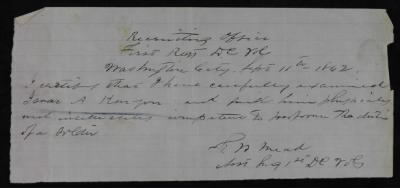 Recruiting Office
First Regt D.C. Vol
Washington City Sept 11th 1862
I certify that I have carefully examined
Isaac A and find him physically
and intellectually competent to perform the duties
of a Soldier
Mead
1st D.C. Vols